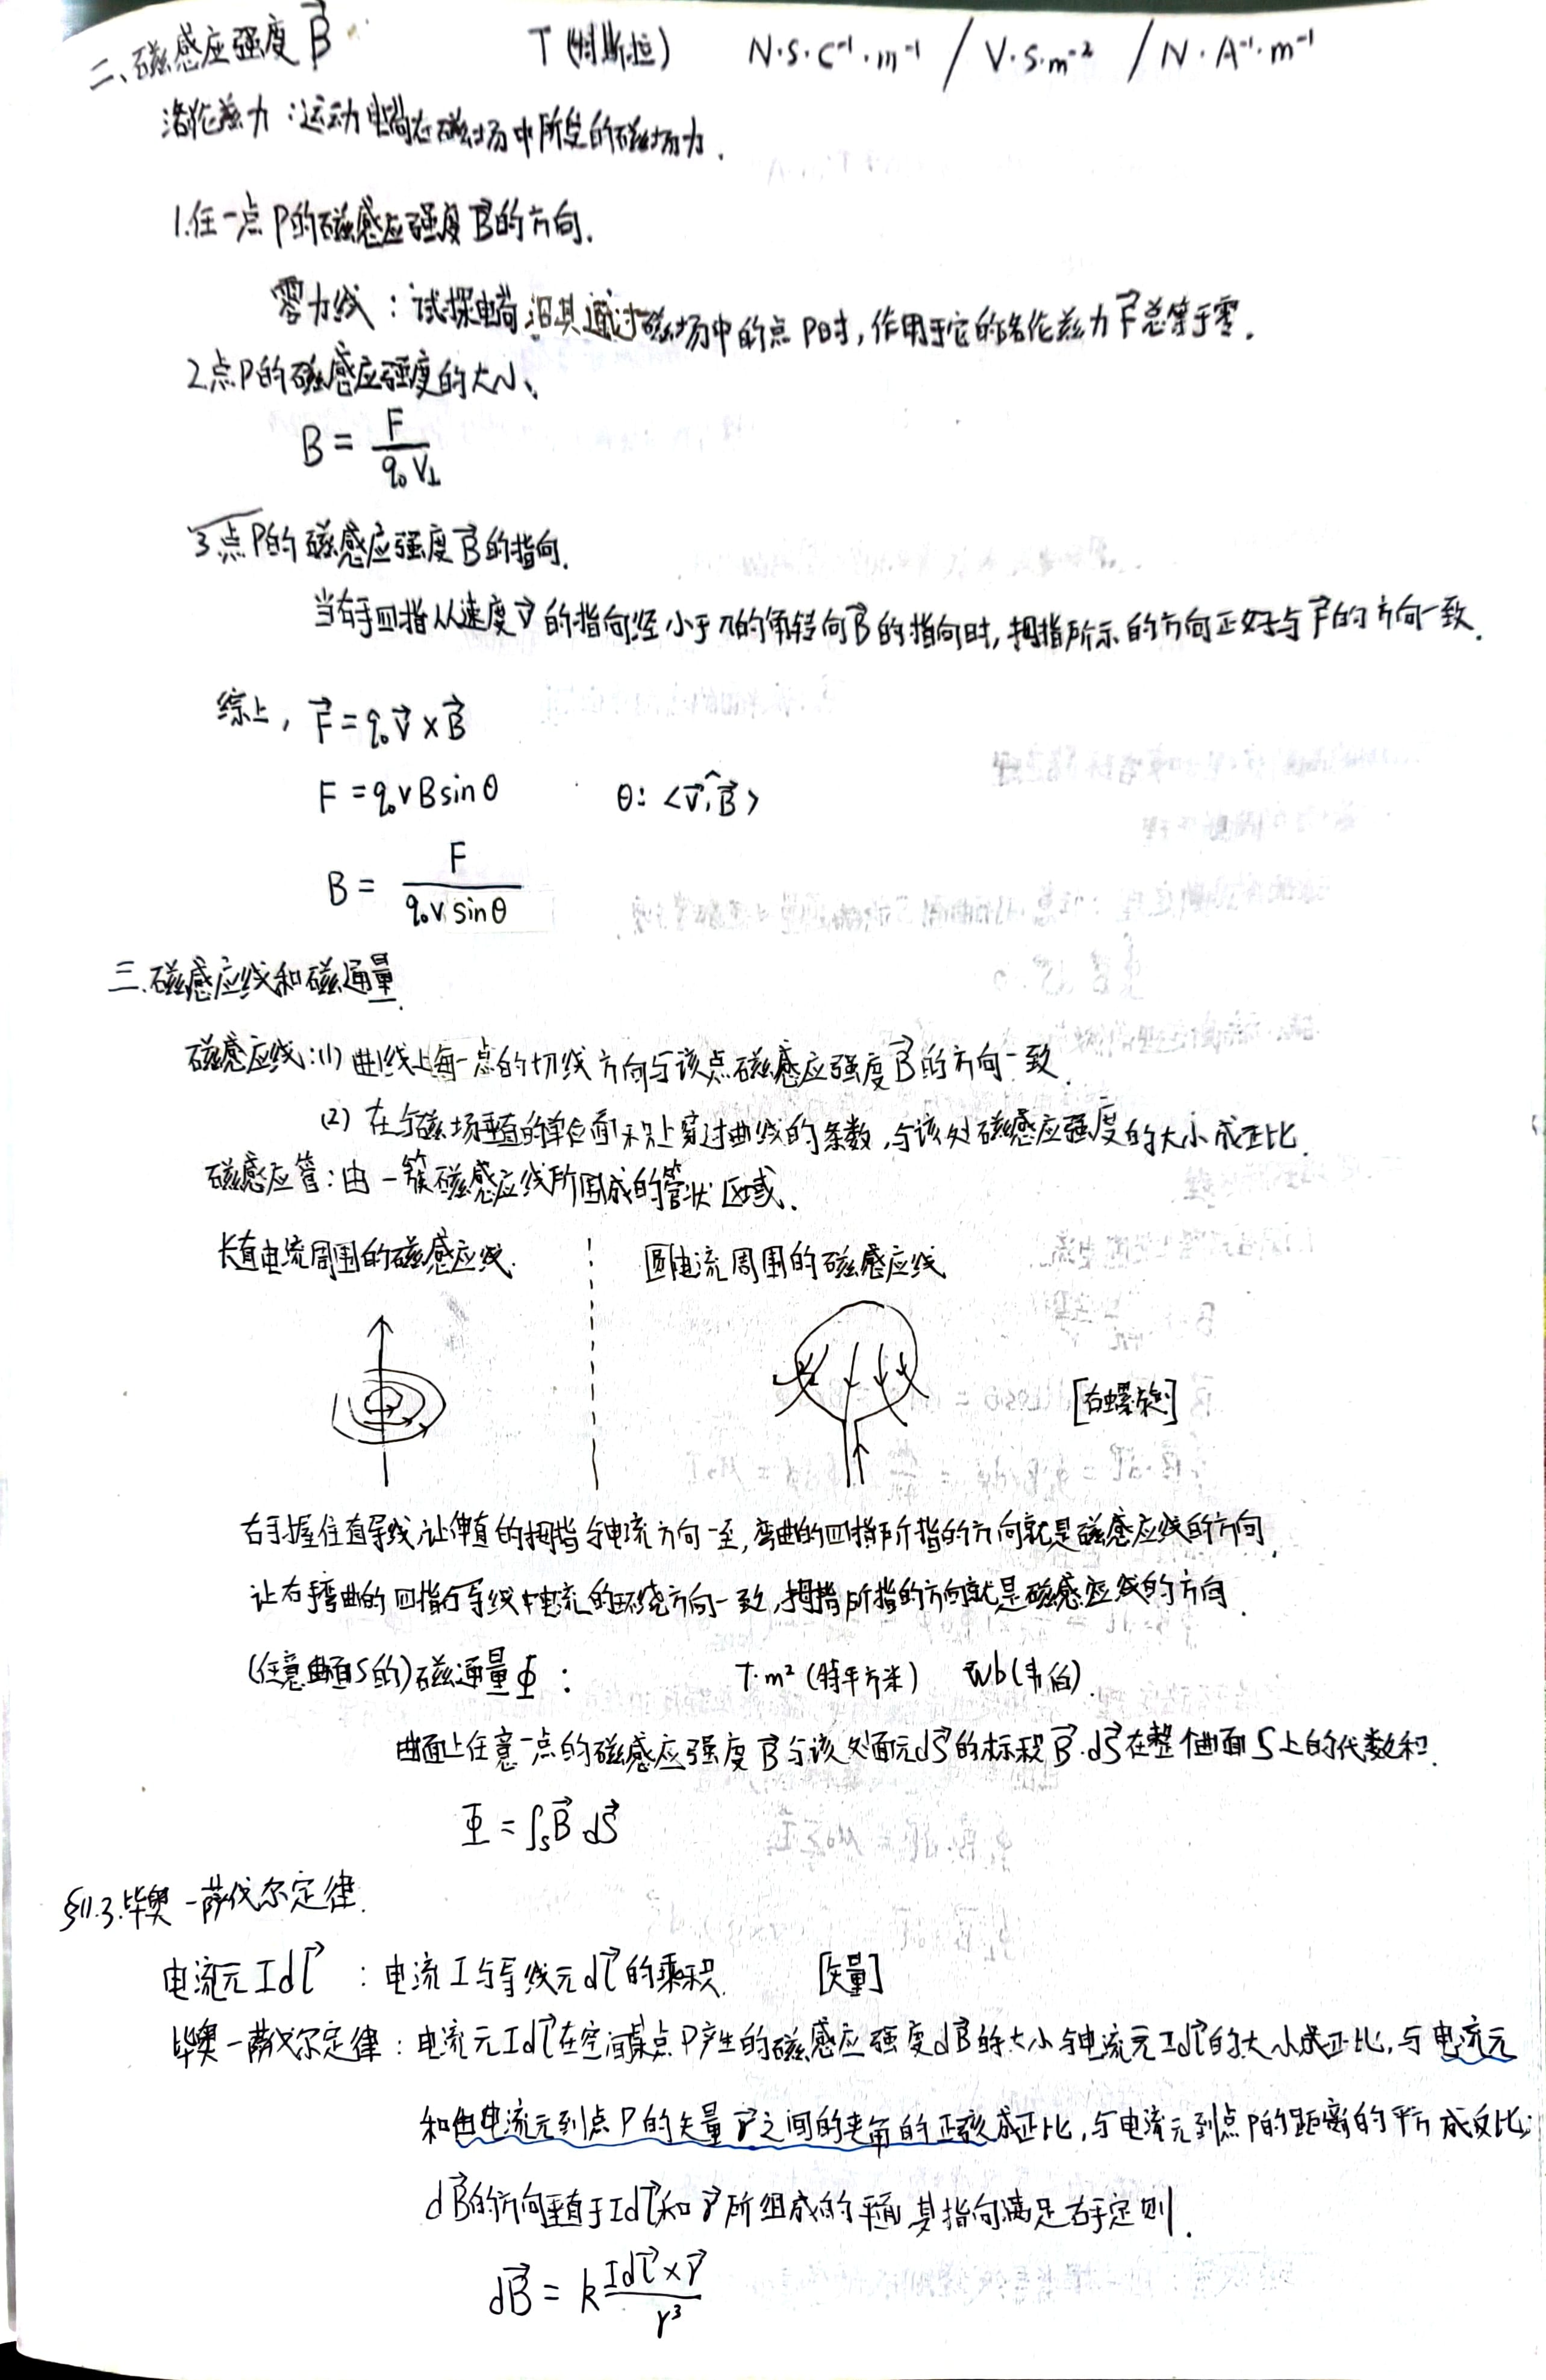 二、磁感应强度 B⃗    T (特斯拉)    N·S·C⁻¹·m⁻¹ / V·S·m⁻² / N·A⁻¹·m⁻¹
洛伦兹力：运动电荷在磁场中所受的磁场力.
1.任一点P的磁感应强度B⃗的方向.
零力线：试探电荷沿其通过磁场中的点P时,作用于它的洛伦兹力F⃗总等于零.
2.点P的磁感应强度的大小、
B = F / q₀V⊥
3.点P的磁感应强度B⃗的指向.
当右手四指从速度v⃗的指向经小于π的角转向B⃗的指向时,拇指所示的方向正好与F⃗的方向一致.
综上, F⃗ = q₀v⃗ × B⃗
F = q₀vBsinθ    θ: <v⃗,B⃗>
B = F / q₀v sinθ
三.磁感应线和磁通量.
磁感应线:(1) 曲线上每一点的切线方向与该点磁感应强度B⃗的方向一致.
(2) 在与磁场垂直的单位面积上穿过曲线的条数,与该处磁感应强度的大小成正比.
磁感应管:由一簇磁感应线所围成的管状区域.
长直电流周围的磁感应线.    圆电流周围的磁感应线
[右螺旋]
右手握住直导线,让伸直的拇指与电流方向一至,弯曲的四指所指的方向就是磁感应线的方向.
让右手弯曲的四指与导线中电流的环绕方向一致,拇指所指的方向就是磁感应线的方向.
(任意曲面S的)磁通量Φ：    T·m² (特平方米)    Wb(韦伯).
曲面上任意一点的磁感应强度B⃗与该处面元dS⃗的标积B⃗·dS⃗在整个曲面S上的代数和.
Φ = ∫ₛB⃗·dS⃗
§11.3.毕奥-萨伐尔定律.
电流元Idl⃗ ：电流I与导线元dl⃗的乘积.    [矢量]
毕奥-萨伐尔定律：电流元Idl⃗在空间某点P产生的磁感应强度dB⃗的大小与电流元Idl⃗的大小成正比,与电流元
和由电流元到点P的矢量r⃗之间的夹角的正弦成正比,与电流元到点P的距离的平方成反比;
dB⃗的方向垂直于Idl⃗和r⃗所组成的平面,其指向满足右手定则.
dB⃗ = k Idl⃗×r⃗ / r³